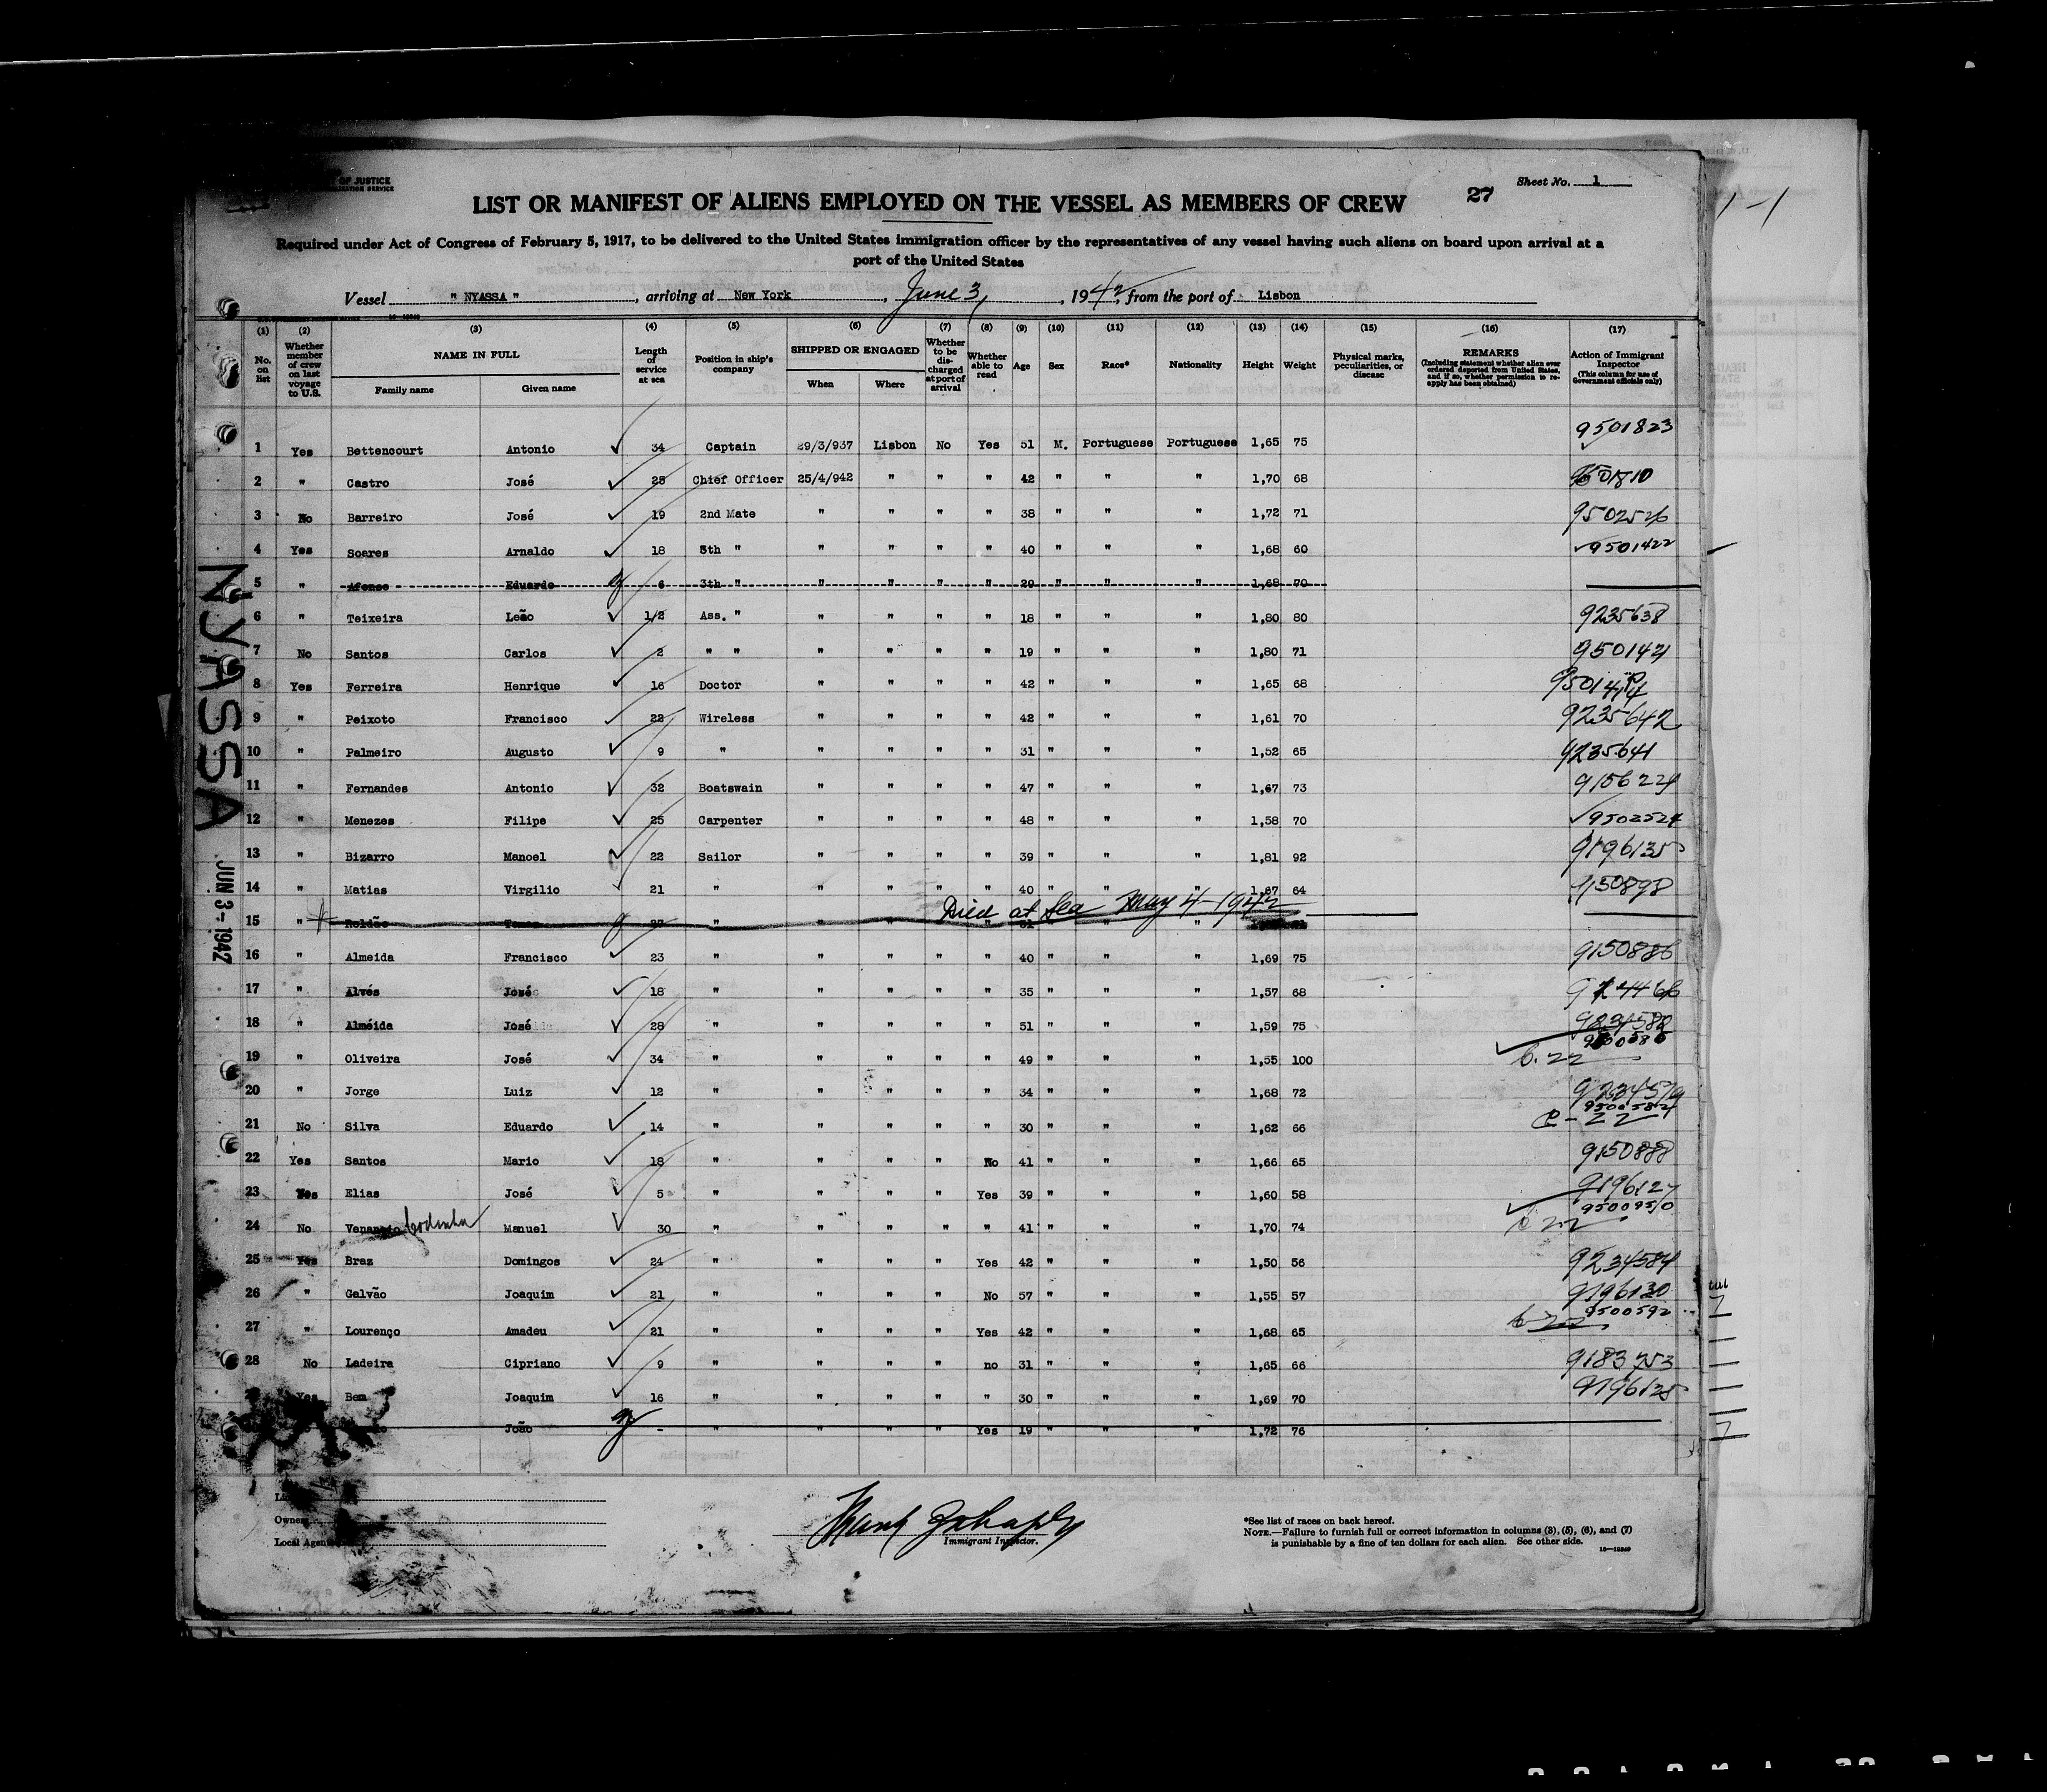 OF JUSTICE
Sheet No. 1
27
LIST OR MANIFEST OF ALIENS EMPLOYED ON THE VESSEL AS MEMBERS OF CREW
Required under Act of Congress of February 5, 1917, to be delivered to the United States immigration officer by the representatives of any vessel having such aliens on board upon arrival at a
port of the United States
Vessel " NYASSA ", arriving at New York, June 3, 1942, from the port of Lisbon
(1) (2) (3) (4) (5) (6) (7) (8) (9) (10) (11) (12) (13) (14) (15) (16) (17)
No. on list
Whether member of crew on last voyage to U.S.
NAME IN FULL
Family name Given name
Length of service at sea
Position in ship's company
SHIPPED OR ENGAGED
When Where
Whether to be discharged at port of arrival
Whether able to read
Age
Sex
Race*
Nationality
Height
Weight
Physical marks, peculiarities, or disease
REMARKS
(Including statement whether alien ever ordered deported from United States, and if so, whether permission to reapply has been obtained)
Action of Immigrant Inspector
(This column for use of Government officials only)
1 Yes Bettencourt Antonio 34 Captain 29/3/937 Lisbon No Yes 51 M. Portuguese Portuguese 1,65 75 9501823
2 " Castro José 25 Chief Officer 25/4/942 " " " 42 " " " 1,70 68
3 No Barreiro José 19 2nd Mate " " " " 38 " " " 1,72 71 9502526
4 Yes Soares Arnaldo 18 3th " " " " " 40 " " " 1,68 60 9501422
5 " Afonso Eduardo 6 3th " " " " " 29 " " " 1,68 70
6 " Teixeira Leão 1/2 Ass. " " " " " 18 " " " 1,80 80 9235638
7 No Santos Carlos 2 " " " " " " 19 " " " 1,80 71 9501421
8 Yes Ferreira Henrique 16 Doctor " " " " 42 " " " 1,65 68
9 " Peixoto Francisco 22 Wireless " " " " 42 " " " 1,61 70 9235642
10 " Palmeiro Augusto 9 " " " " " 31 " " " 1,52 65 9235641
11 " Fernandes Antonio 32 Boatswain " " " " 47 " " " 1,67 73 9156224
12 " Menezes Filipe 25 Carpenter " " " " 48 " " " 1,58 70 9502524
13 " Bizarro Manoel 22 Sailor " " " " 39 " " " 1,81 92 9196135
14 " Matias Virgilio 21 " " " " " 40 " " " 1,67 64 9150898
15 " Roldão 27 " Died at Sea May 4-1942
16 " Almeida Francisco 23 " " " " " 40 " " " 1,69 75 9150886
17 " Alvés José 18 " " " " " 35 " " " 1,57 68
18 " Alméida José 28 " " " " " 51 " " " 1,59 75
19 " Oliveira José 34 " " " " " 49 " " " 1,55 100
20 " Jorge Luiz 12 " " " " " 34 " " " 1,68 72
21 No Silva Eduardo 14 " " " " " 30 " " " 1,62 66
22 Yes Santos Mario 18 " " " " No 41 " " " 1,66 65 9150888
23 Yes Elias José 5 " " " " Yes 39 " " " 1,60 58 9196127
24 No Manuel 30 " " " " " 41 " " " 1,70 74 9500950
25 Yes Braz Domingos 24 " " " " Yes 42 " " " 1,50 56 9234584
26 " Galvão Joaquim 21 " " " " No 57 " " " 1,55 57 9196130
27 " Lourenço Amadeu 21 " " " " Yes 42 " " " 1,68 65 9500592
28 No Ladeira Cipriano 9 " " " " no 31 " " " 1,65 66 9183753
Yes Bem Joaquim 16 " " " " " 30 " " " 1,69 70 9196125
João - " " " " Yes 19 " " " 1,72 76
NYASSA
JUN 3-1942
Owners
Local Agents
Immigrant Inspector.
*See list of races on back hereof.
NOTE.—Failure to furnish full or correct information in columns (3), (5), (6), and (7)
is punishable by a fine of ten dollars for each alien. See other side.